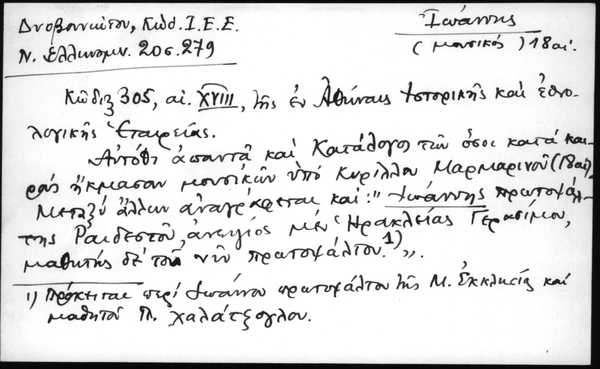 Δυοβουνιώτου, Κώδ. Ι.Ε.Ε.
Ν. Ελληνομν. 20σ. 279
Ἰωάννης
(μουσικός) 18 αἰ.
Κῶδιξ 305, αἰ. XVIII, τῆς ἐν Ἀθήναις Ἱστορικῆς καὶ ἐθνο-
λογικῆς Ἑταιρείας.
Αὐτόθι ἀπαντᾶ καὶ Κατάλογος τῶν ὅσοι κατὰ και-
ροὺς ἤκμασαν μουσικῶν ὑπό Κυρίλλου Μαρμαρινοῦ (18 αἰ),
Μεταξύ ἄλλων ἀναγράφεται καί: "Ἰωάννης πρωτοψάλ-
της Ῥαιδεστοῦ, ἀνεψιός μέν Ἡρακλείας Γερασίμου,
μαθητής δέ τοῦ νῦν πρωτοψάλτου.¹)".
1) Πρόκειται περί Ἰωάννου πρωτοψάλτου τῆς Μ. Ἐκκλησίας καί
μαθητοῦ Π. Χαλάτζογλου.